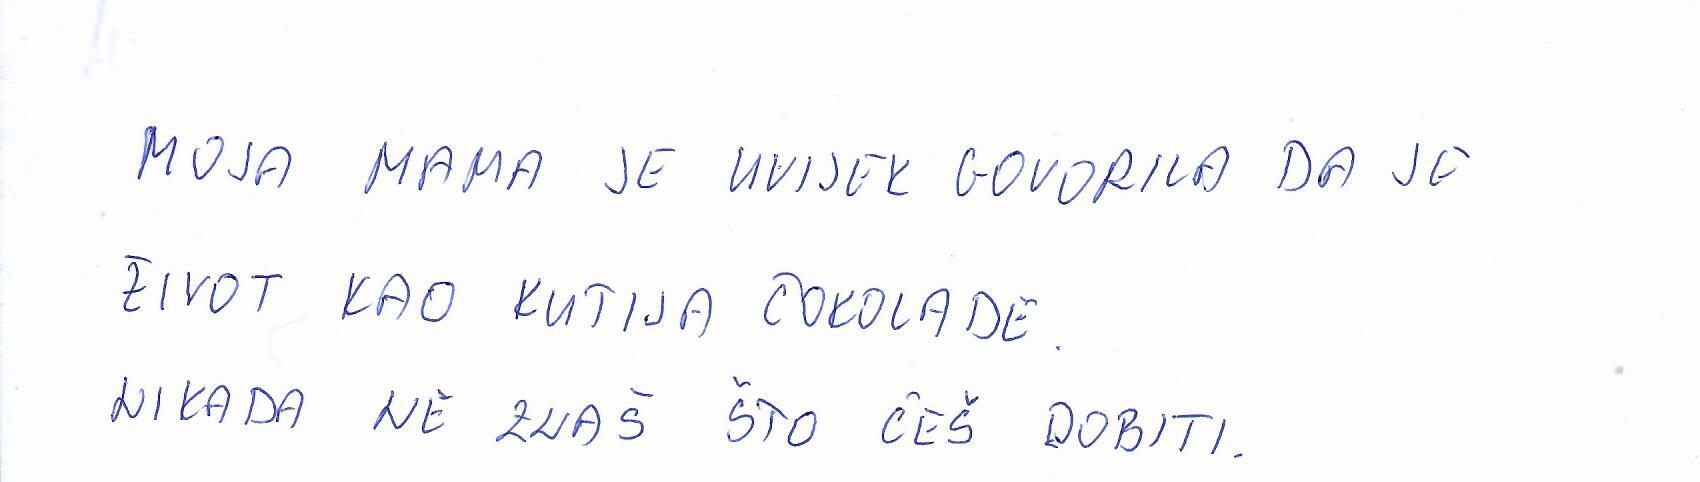 MOJA MAMA JE UVIJEK GOVORILA DA JE
ŽIVOT KAO KUTIJA ČOKOLADE.
NIKADA NE ZNAŠ ŠTO ĆEŠ DOBITI.